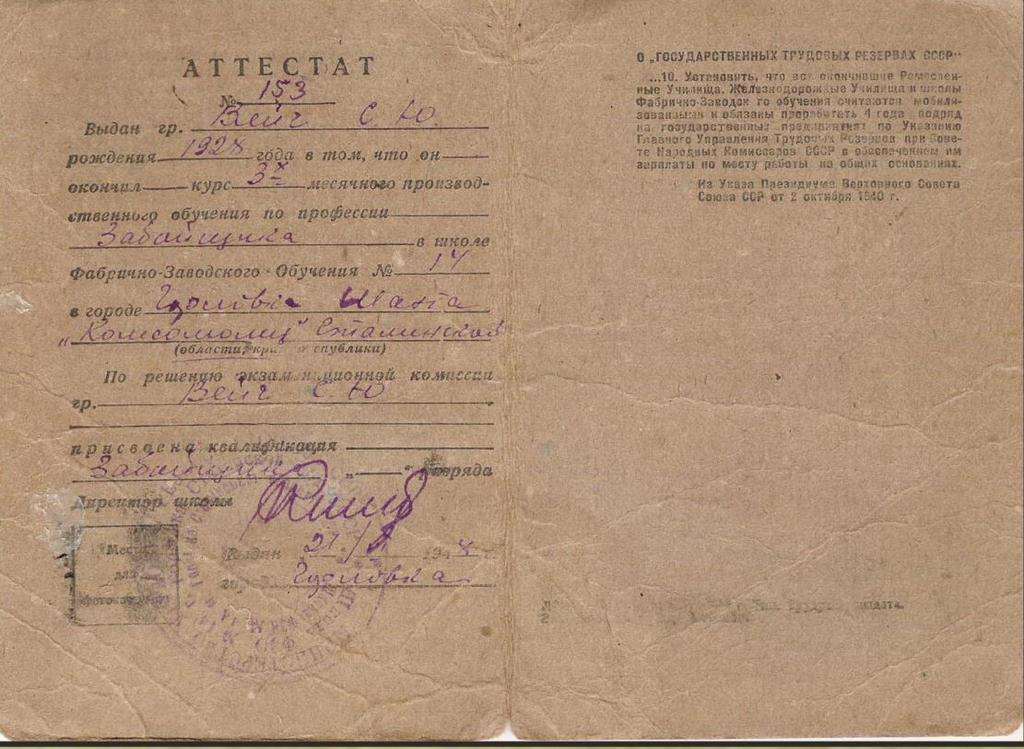 АТТЕСТАТ
№ 153
Выдан гр. Вейг С. Ю.
рождения 1928 года в том, что он
окончил курс 3х месячного производ-
ственного обучения по профессии
Забойщика в школе
Фабрично-Заводского Обучения № 14
в городе Шахта
„Комсомолец" Сталинской
(области, края спублики)
По решению экзаменационной комиссии
гр. Вейг С. Ю
присвоена квалификация
Забойщика „ — " разряда
Директор школы
Место
для
фотокарточки
Выдан 21/ 194
гор.
О „ГОСУДАРСТВЕННЫХ ТРУДОВЫХ РЕЗЕРВАХ СССР"
...10. Установить, что все окончившие Ремеслен-
ные Училища, Железнодорожные Училища и школы
Фабрично-Заводск го обучения считаются мобили-
зованными и обязаны проработать 4 года подряд
на государственных предприятиях по Указанию
Главного Управления Трудовых Резервов при Сове-
те Народных Комиссаров СССР с обеспечением им
зарплаты по месту работы на общих основаниях.
Из Указа Президиума Верховного Совета
Союза ССР от 2 октября 1940 г.